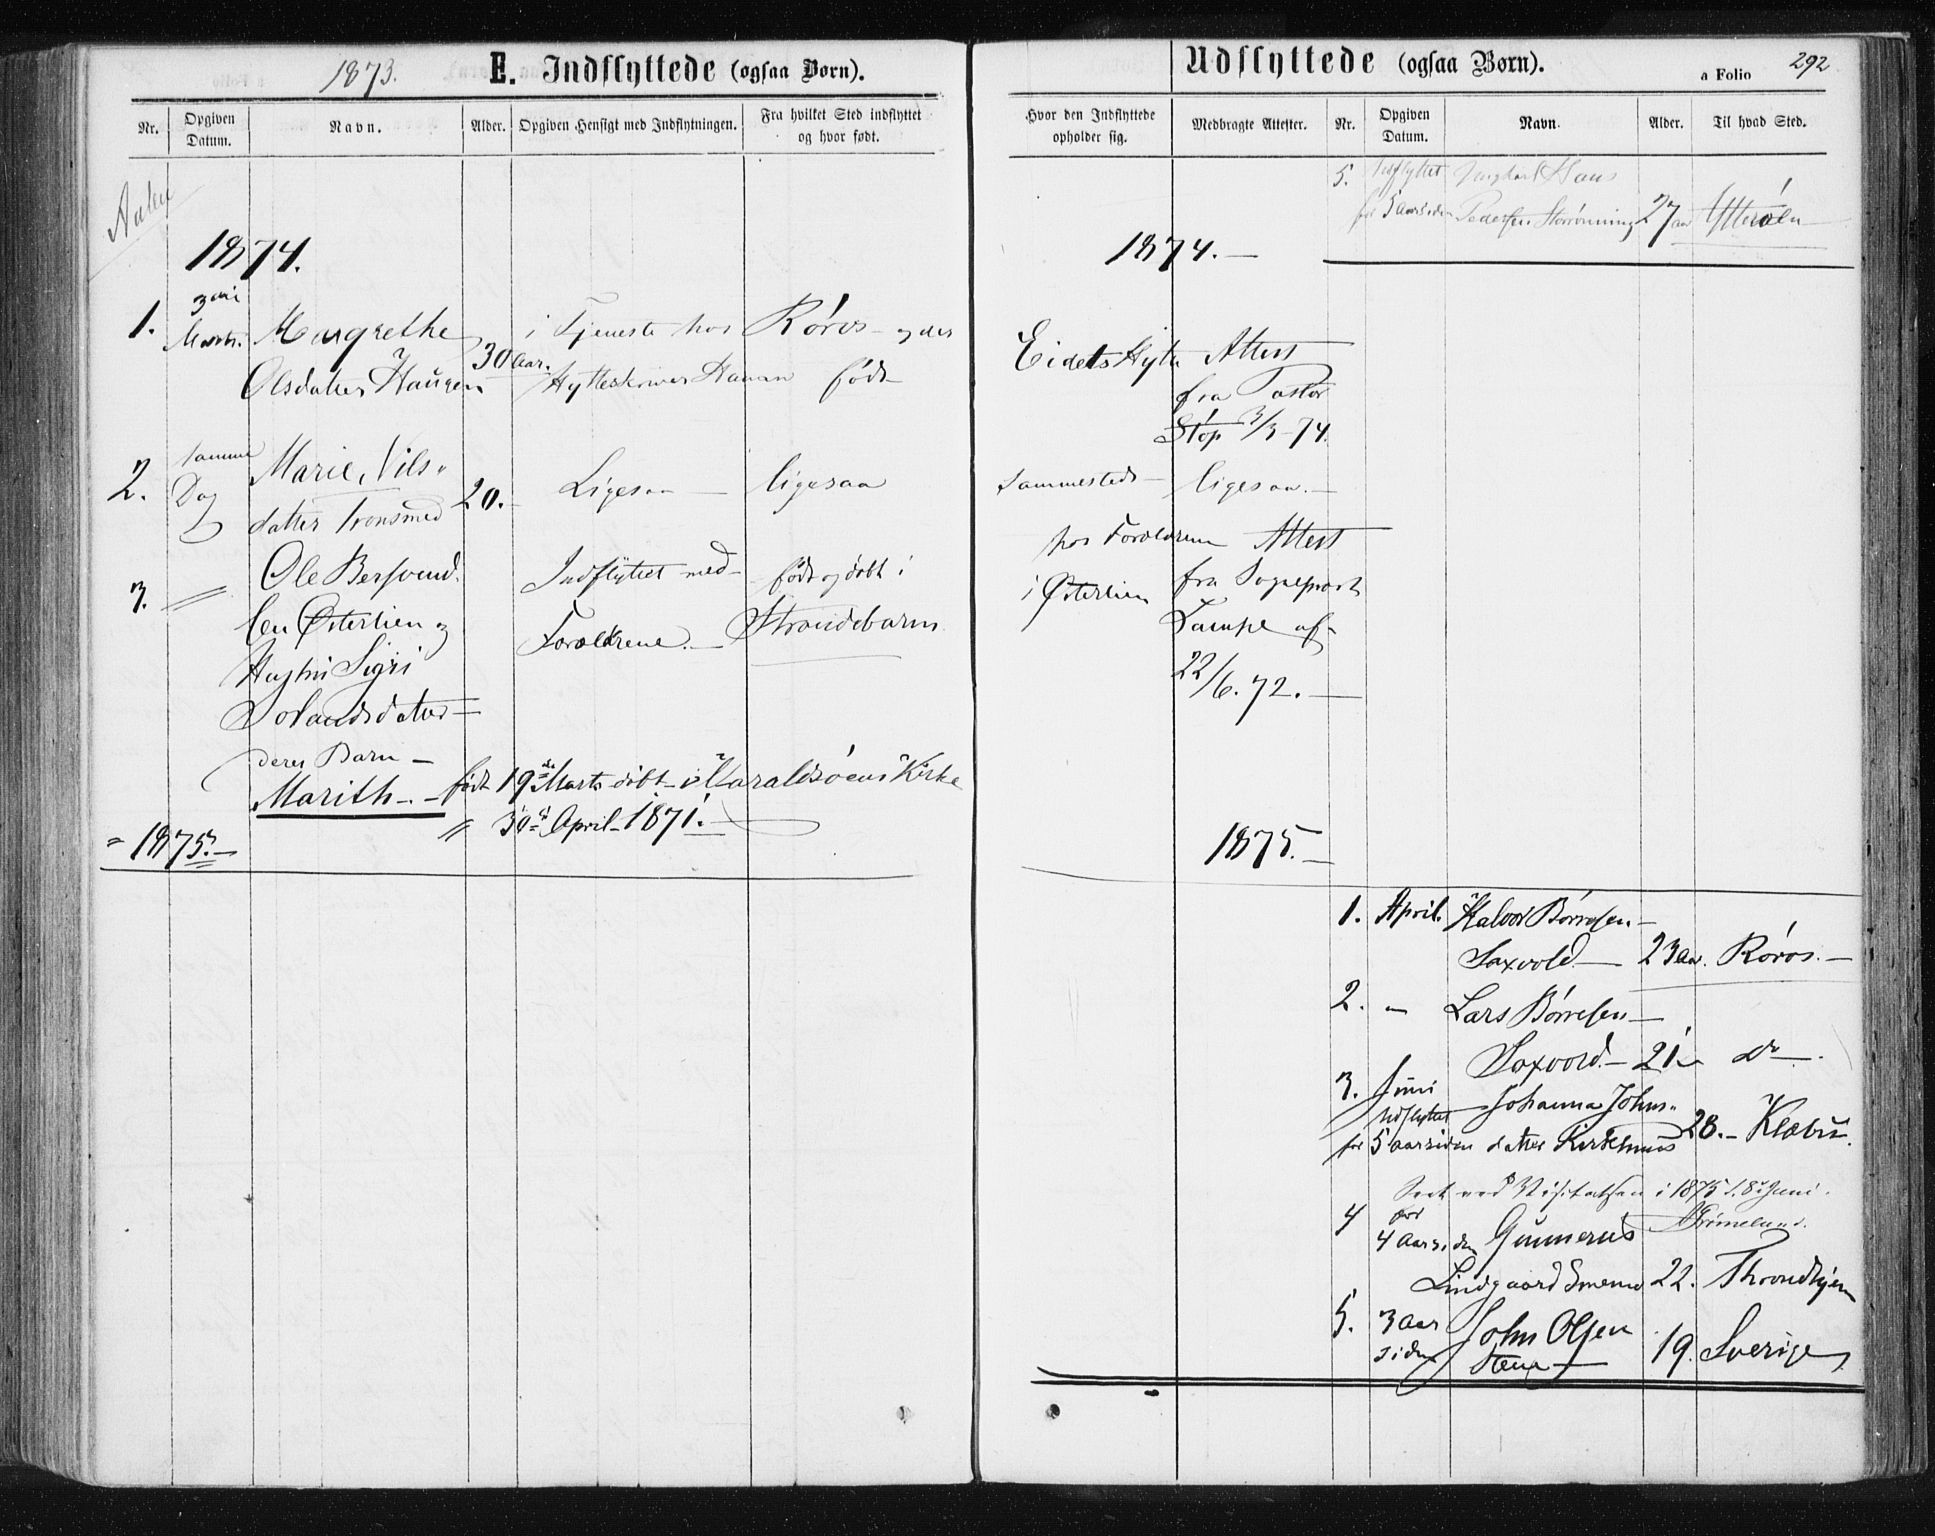 1873.
E. Indflyttede (ogsaa Børn).
Nr.
Opgiven Datum.
Navn.
Alder.
Opgiven Hensigt med Indflytningen.
Fra hvilket Sted indflyttet og hvor født.
Aalen
1874.
1.
Marts.
Margrethe
Olsdatter Haugen
30 Aar.
i Tjeneste hos
Hytteskriver
Røros og der
født
2.
samme
Dag
Marie Nils-
datter Tronsmed
20.
Ligesaa
ligesaa
3.
Ole Bersvend-
sen Østerlien og
Hustru Sigri
datter
deres Barn
Marith
Indflyttet med
Forældrene.
født og døbt i
Strandebarm
født 19de Marts døbt i Haraldsøens Kirke
" 30te April 1871.
1875.
Udflyttede (ogsaa Børn).
a Folio
292
Hvor den Indflyttede opholder sig.
Medbragte Attester.
Nr.
Opgiven Datum.
Navn.
Alder.
Til hvad Sted.
5.
Udflyttet
for 5 Aar siden
Ungkarl Hans
Pedersen
27 aar
Ytterøen
1874.
Eidets Hytte
Attest
fra Pastor
Støp 3/3-74.
sammesteds
ligesaa.
hos Forældrene
i Østerlien
Attest
fra Sogneprest
Lampe af
22/6. 72.
1875.
1.
April.
Halvor Børresen
Saxvold
23 Aar.
Røros.
2.
"
Lars Børresen
Saxvold
21
do
3.
Juni
Udflyttet
for 5 aar siden
Johanna Johns-
datter Kirkhuus
28.
Klæbu.
Seet ved Visitatsen i 1875 d. 8de Juni.
Grimelund.
4
for
4 Aar siden
Gunnerus
Lindgaard
22.
Throndhjem
5.
3 Aar
siden
John Olsen
Stene
19.
Sverige